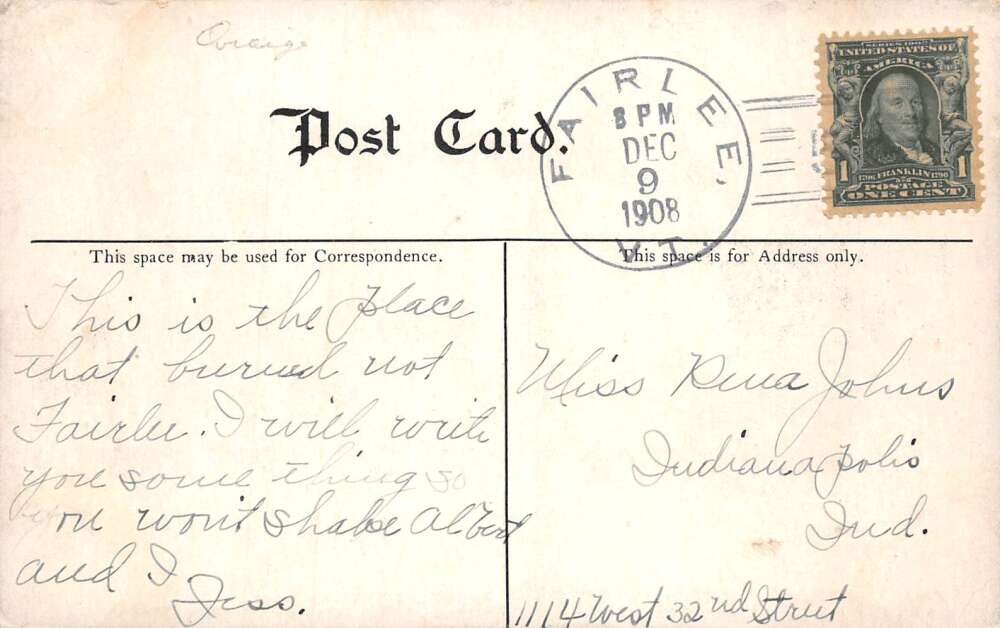 Orange
SERIES 1902
UNITED STATES OF
AMERICA
1706 FRANKLIN 1790
1 1
POSTAGE
ONE CENT
FAIRLEE,
8 PM
DEC
9
1908
VT.
Post Card.
This space may be used for Correspondence.
This space is for Address only.
This is the place
that burned not
Fairlee. I will write
you some thing so
you wont shake Albert
and I
Jess.
Miss Rena Johns
Indianapolis
Ind.
1114 West 32nd Street